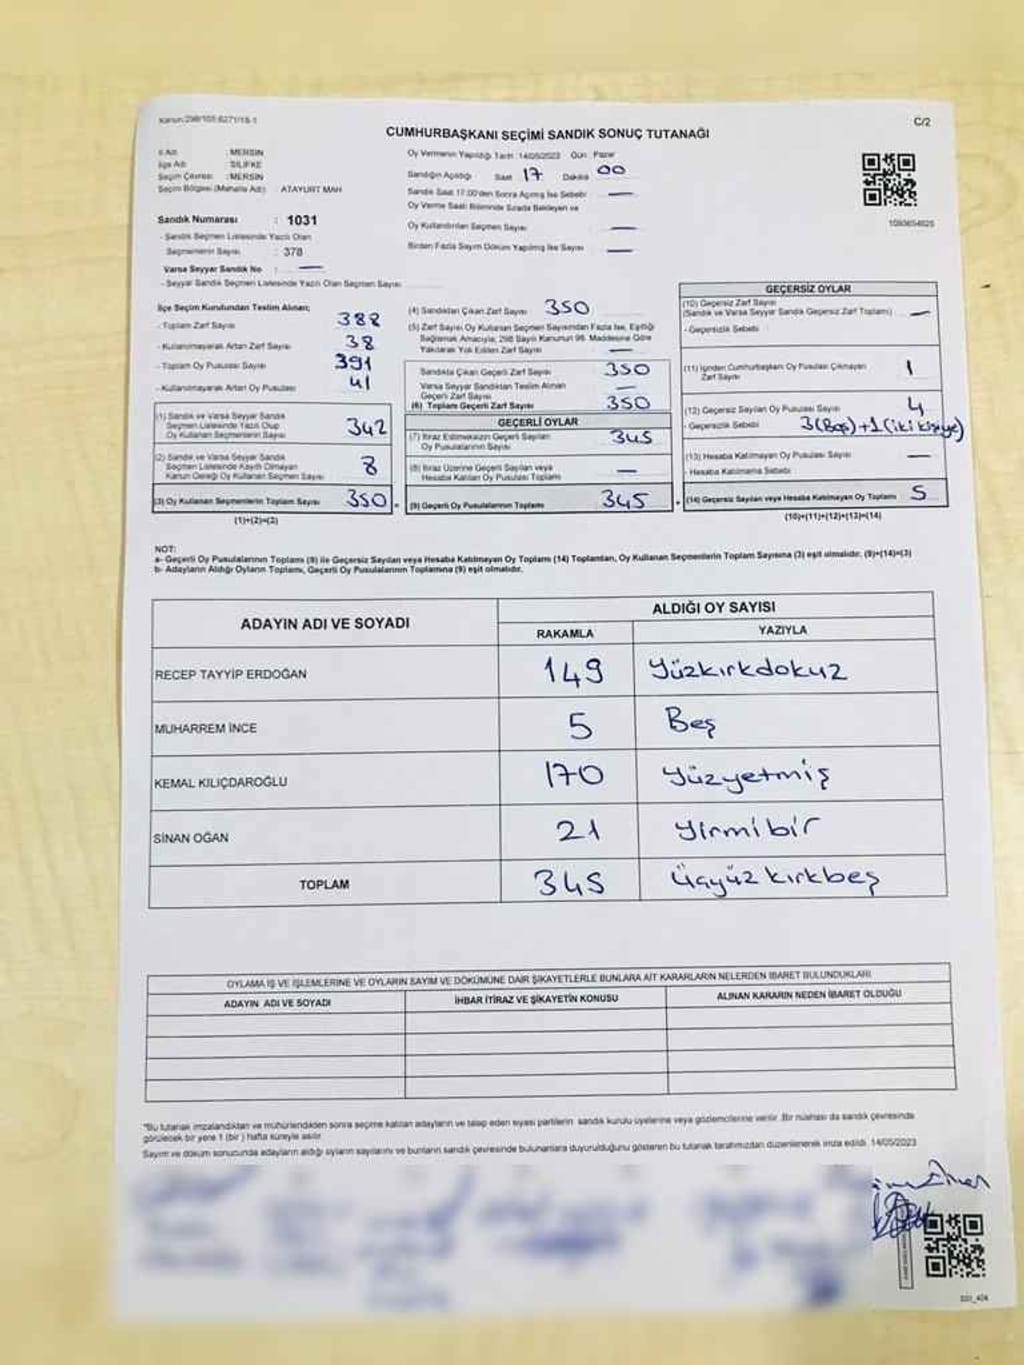 Kanun:298/105;6271/18-1
C/2
CUMHURBAŞKANI SEÇİMİ SANDIK SONUÇ TUTANAĞI
İl Adı : MERSİN
İlçe Adı : SİLİFKE
Seçim Çevresi : MERSİN
Seçim Bölgesi (Mahalle Adı) : ATAYURT MAH
Oy Vermenin Yapıldığı Tarih : 14/05/2023 Gün : Pazar
Sandığın Açıldığı Saat 17 Dakika 00
Sandık Saat 17:00'den Sonra Açılmış İse Sebebi —
Oy Verme Saati Bitiminde Sırada Bekleyen ve
Oy Kullandırılan Seçmen Sayısı —
Birden Fazla Sayım Döküm Yapılmış İse Sayısı —
Sandık Numarası : 1031
- Sandık Seçmen Listesinde Yazılı Olan
Seçmenlerin Sayısı : 378
Varsa Seyyar Sandık No : —
- Seyyar Sandık Seçmen Listesinde Yazılı Olan Seçmen Sayısı :
İlçe Seçim Kurulundan Teslim Alınan;
- Toplam Zarf Sayısı 388
- Kullanılmayarak Artan Zarf Sayısı 38
- Toplam Oy Pusulası Sayısı 391
- Kullanılmayarak Artan Oy Pusulası 41
(1) Sandık ve Varsa Seyyar Sandık
Seçmen Listesinde Yazılı Olup
Oy Kullanan Seçmenlerin Sayısı 342
(2) Sandık ve Varsa Seyyar Sandık
Seçmen Listesinde Kayıtlı Olmayan
Kanun Gereği Oy Kullanan Seçmen Sayısı 8
(3) Oy Kullanan Seçmenlerin Toplam Sayısı 350
(1)+(2)=(3)
(4) Sandıktan Çıkan Zarf Sayısı 350
(5) Zarf Sayısı Oy Kullanan Seçmen Sayısından Fazla İse, Eşitliği
Sağlamak Amacıyla, 298 Sayılı Kanunun 98. Maddesine Göre
Yakılarak Yok Edilen Zarf Sayısı —
Sandıkta Çıkan Geçerli Zarf Sayısı 350
Varsa Seyyar Sandıktan Teslim Alınan
Geçerli Zarf Sayısı —
(6) Toplam Geçerli Zarf Sayısı 350
GEÇERLİ OYLAR
(7) İtiraz Edilmeksizin Geçerli Sayılan
Oy Pusulasının Sayısı 345
(8) İtiraz Üzerine Geçerli Sayılan veya
Hesaba Katılan Oy Pusulası Toplamı —
(9) Geçerli Oy Pusulalarının Toplamı 345
GEÇERSİZ OYLAR
(10) Geçersiz Zarf Sayısı
(Sandık ve Varsa Seyyar Sandık Geçersiz Zarf Toplamı) —
- Geçersizlik Sebebi
(11) İçinden Cumhurbaşkanı Oy Pusulası Çıkmayan
Zarf Sayısı 1
(12) Geçersiz Sayılan Oy Pusulası Sayısı 4
- Geçersizlik Sebebi 3(Boş)+1(iki kişiye)
(13) Hesaba Katılmayan Oy Pusulası Sayısı —
- Hesaba Katılmama Sebebi
(14) Geçersiz Sayılan veya Hesaba Katılmayan Oy Toplamı 5
(10)+(11)+(12)+(13)=(14)
NOT:
a- Geçerli Oy Pusulalarının Toplamı (9) ile Geçersiz Sayılan veya Hesaba Katılmayan Oy Toplamı (14) Toplamları, Oy Kullanan Seçmenlerin Toplam Sayısına (3) eşit olmalıdır. (9)+(14)=(3)
b- Adayların Aldığı Oyların Toplamı, Geçerli Oy Pusulalarının Toplamına (9) eşit olmalıdır.
ADAYIN ADI VE SOYADI
ALDIĞI OY SAYISI
RAKAMLA YAZIYLA
RECEP TAYYİP ERDOĞAN 149 Yüzkırkdokuz
MUHARREM İNCE 5 Beş
KEMAL KILIÇDAROĞLU 170 Yüzyetmiş
SİNAN OĞAN 21 Yirmibir
TOPLAM 345 Üçyüz kırkbeş
OYLAMA İŞ VE İŞLEMLERİNE VE OYLARIN SAYIM VE DÖKÜMÜNE DAİR ŞİKAYETLERLE BUNLARA AİT KARARLARIN NELERDEN İBARET BULUNDUKLARI
ADAYIN ADI VE SOYADI İHBAR İTİRAZ VE ŞİKAYETİN KONUSU ALINAN KARARIN NEDEN İBARET OLDUĞU
"Bu tutanak imzalandıktan ve mühürlendikten sonra seçime katılan adayların ve talep eden siyasi partilerin sandık kurulu üyelerine veya gözlemcilerine verilir. Bir nüshası da sandık çevresinde
görülecek bir yere 1 (bir) hafta süreyle asılır.
Sayım ve döküm sonucunda adayların aldığı oyların sayılarını ve bunların sandık çevresinde bulunanlara duyurulduğunu gösteren bu tutanak tarafımızdan düzenlenerek imza edildi. 14/05/2023